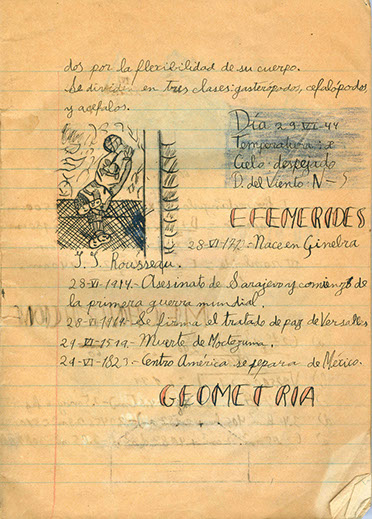 dos por la flexibilidad de su cuerpo.
Se dividen en tres clases: gasterópodos, cefalópodos,
y acéfalos.
Día 29-VI-44
Temperatura:
Cielo: despejado
D. del Viento: N-S
EFEMERIDES
28-VI-1712-Nace en Ginebra
J. J. Rousseau.
28-VI-1914-Asesinato de Sarajevo y comienzo de
la primera guerra mundial
28-VI-1919-Se firma el tratado de paz de Versalles
29-VI-1519-Muerte de Moctezuma.
29-VI-1823-Centro América se separa de México.
GEOMETRIA